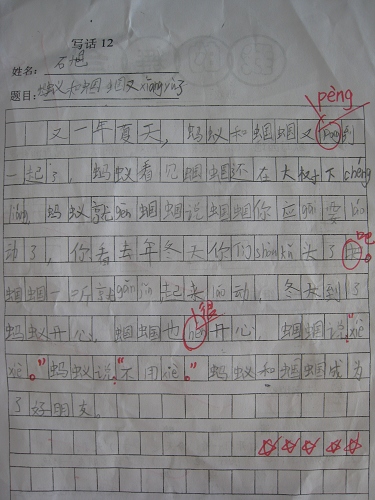 写话12
姓名: 石旭
题目: 蚂蚁和蝈蝈又xiāng yù了
pèng
又一年夏天,蚂蚁和蝈蝈又pèng到
一起了,蚂蚁看见蝈蝈还在大树下chéng
liáng 蚂蚁就gēn蝈蝈说蝈蝈你应gāi要láo
动了,你看去年冬天你们shòu kǔ头了
吧。
蝈蝈一听就gǎn jǐn起来劳动,冬天到了
很
蚂蚁开心,蝈蝈也hěn开心,蝈蝈说:“xiè
xiè。”蚂蚁说:“不用xiè。”蚂蚁和蝈蝈成为
了好朋友。